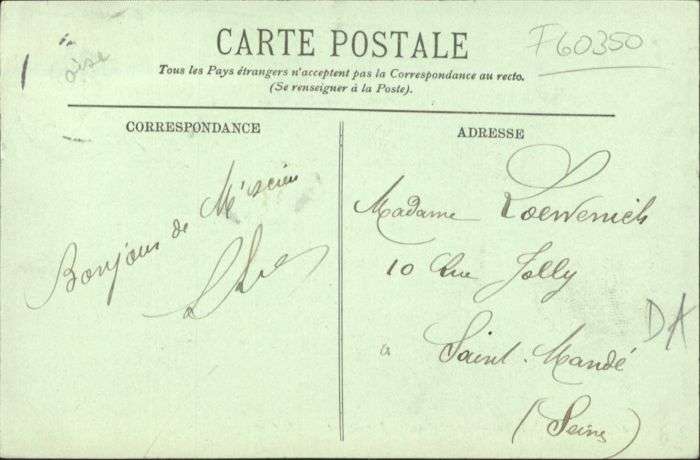 CARTE POSTALE
F60350
oise
Tous les Pays étrangers n'acceptent pas la Correspondance au recto.
(Se renseigner à la Poste).
CORRESPONDANCE
Bonjour de
ADRESSE
Madame Loewenich
10 Rue Jolly
à Saint-Mandé
(Seine)
DA